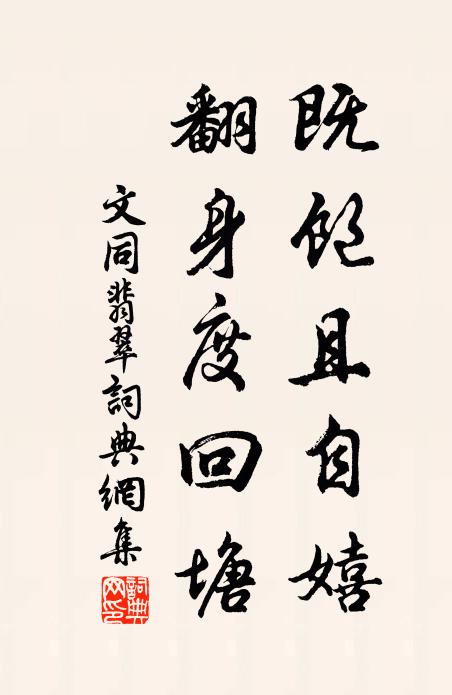 既飽且自嬉
翻身度回塘
文同翡翠詞典網集
詞典網印